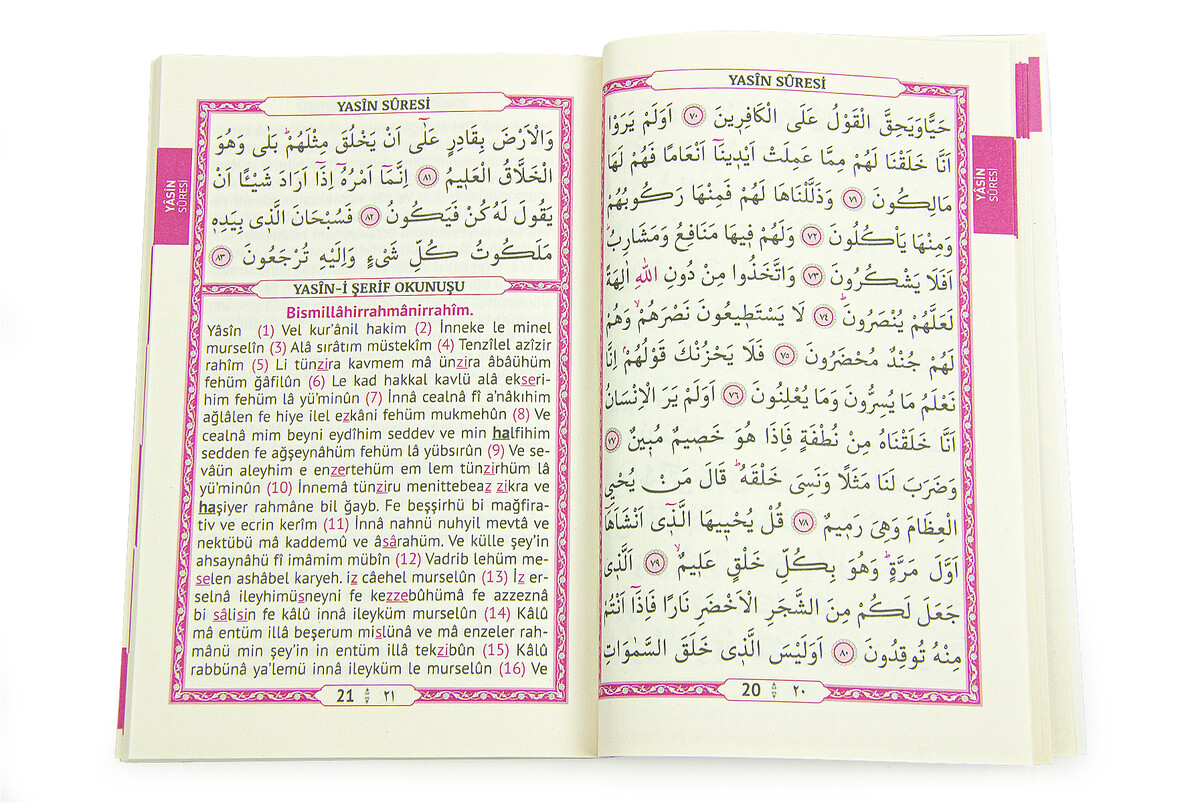 YASİN SÛRESİ
حَيًّا وَيَحِقَّ الْقَوْلُ عَلَى الْكَافِرِينَ ﴿٧٠﴾ اَوَلَمْ يَرَوْا
اَنَّا خَلَقْنَا لَهُمْ مِمَّا عَمِلَتْ اَيْدِينَٓا اَنْعَامًا فَهُمْ لَهَا
مَالِكُونَ ﴿٧١﴾ وَذَلَّلْنَاهَا لَهُمْ فَمِنْهَا رَكُوبُهُمْ
وَمِنْهَا يَأْكُلُونَ ﴿٧٢﴾ وَلَهُمْ فِيهَا مَنَافِعُ وَمَشَارِبُ
اَفَلَا يَشْكُرُونَ ﴿٧٣﴾ وَاتَّخَذُوا مِنْ دُونِ اللّٰهِ اٰلِهَةً
لَعَلَّهُمْ يُنْصَرُونَۜ ﴿٧٤﴾ لَا يَسْتَطِيعُونَ نَصْرَهُمْۙ وَهُمْ
لَهُمْ جُنْدٌ مُحْضَرُونَ ﴿٧٥﴾ فَلَا يَحْزُنْكَ قَوْلُهُمْۢ اِنَّا
نَعْلَمُ مَا يُسِرُّونَ وَمَا يُعْلِنُونَ ﴿٧٦﴾ اَوَلَمْ يَرَ الْاِنْسَانُ
اَنَّا خَلَقْنَاهُ مِنْ نُطْفَةٍ فَاِذَا هُوَ خَصِيمٌ مُبِينٌ ﴿٧٧﴾
وَضَرَبَ لَنَا مَثَلًا وَنَسِيَ خَلْقَهُۜ قَالَ مَنْ يُحْيِي
الْعِظَامَ وَهِيَ رَمِيمٌ ﴿٧٨﴾ قُلْ يُحْيِيهَا الَّذِٓي اَنْشَاَهَٓا
اَوَّلَ مَرَّةٍۜ وَهُوَ بِكُلِّ خَلْقٍ عَلِيمٌۙ ﴿٧٩﴾ اَلَّذِي
جَعَلَ لَكُمْ مِنَ الشَّجَرِ الْاَخْضَرِ نَارًا فَاِذَٓا اَنْتُمْ
مِنْهُ تُوقِدُونَ ﴿٨٠﴾ اَوَلَيْسَ الَّذِي خَلَقَ السَّمٰوَاتِ
20 ٢٠
YÂSİN
SÛRESİ
YASÎN SÛRESİ
وَالْاَرْضَ بِقَادِرٍ عَلٰٓى اَنْ يَخْلُقَ مِثْلَهُمْۜ بَلٰى وَهُوَ
الْخَلَّاقُ الْعَلِيمُ ﴿٨١﴾ اِنَّمَٓا اَمْرُهُٓ اِذَٓا اَرَادَ شَيْـًٔا اَنْ
يَقُولَ لَهُ كُنْ فَيَكُونُ ﴿٨٢﴾ فَسُبْحَانَ الَّذِي بِيَدِهِ
مَلَكُوتُ كُلِّ شَيْءٍ وَاِلَيْهِ تُرْجَعُونَ ﴿٨٣﴾
YASÎN-İ ŞERİF OKUNUŞU
Bismillâhirrahmânirrahîm.
Yâsîn (1) Vel kur'ânil hakim (2) İnneke le minel
murselîn (3) Alâ sırâtım müstekîm (4) Tenzîlel azîzir
rahîm (5) Li tünzira kavmem mâ ünzira âbâühüm
fehüm ğâfilûn (6) Le kad hakkal kavlü alâ ekseri-
him fehüm lâ yü'minûn (7) İnnâ cealnâ fî a'nâkıhim
ağlâlen fe hiye ilel ezkâni fehüm mukmehûn (8) Ve
cealnâ mim beyni eydîhim seddev ve min halfihim
sedden fe ağşeynâhüm fehüm lâ yübsırûn (9) Ve se-
vâün aleyhim e enzertehüm em lem tünzirhüm lâ
yü'minûn (10) İnnemâ tünziru menittebeaz zikra ve
haşiyer rahmâne bil ğayb. Fe beşşirhü bi mağfira-
tiv ve ecrin kerîm (11) İnnâ nahnü nuhyil mevtâ ve
nektübü mâ kaddemû ve âsârahüm. Ve külle şey'in
ahsaynâhü fî imâmim mübîn (12) Vadrib lehüm me-
selen ashâbel karyeh. iz câehel murselûn (13) İz er-
selnâ ileyhimüsneyni fe kezzebûhümâ fe azzeznâ
bi sâlisin fe kâlû innâ ileyküm murselûn (14) Kâlû
mâ entüm illâ beşerum mislünâ ve mâ enzeler rah-
mânü min şey'in in entüm illâ tekzibûn (15) Kâlû
rabbünâ ya'lemü innâ ileyküm le murselûn (16) Ve
21 ٢١
YÂSİN
SÛRESİ